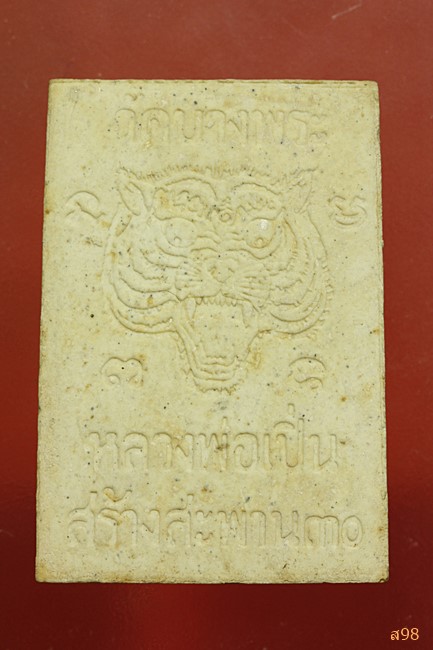 วัดบางพระ
หลวงพ่อเปิ่น
สร้างสะพาน๓๐
ส98